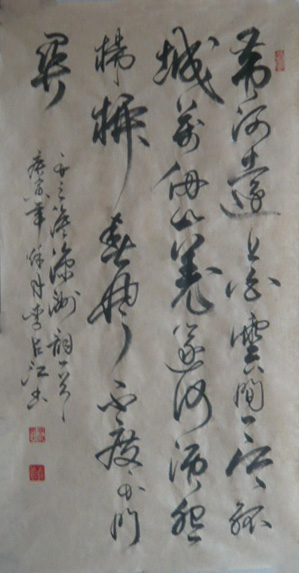 黄河遠上白雲間一片孤
城萬仞山羌篴何須怨
楊柳春風不度玉門
關
王之渙涼州詞一首
庚寅年月李占江书